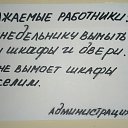 ЖАЕМЫЕ РАБОТНИКИ
НЕДЕЛЬНИКУ ВЫМЫТЬ
ШКАФЫ И ДВЕРИ.
НЕ ВЫМОЕТ ШКАФЫ
СЕЛИМ.
АДМИНИСТРАЦИ